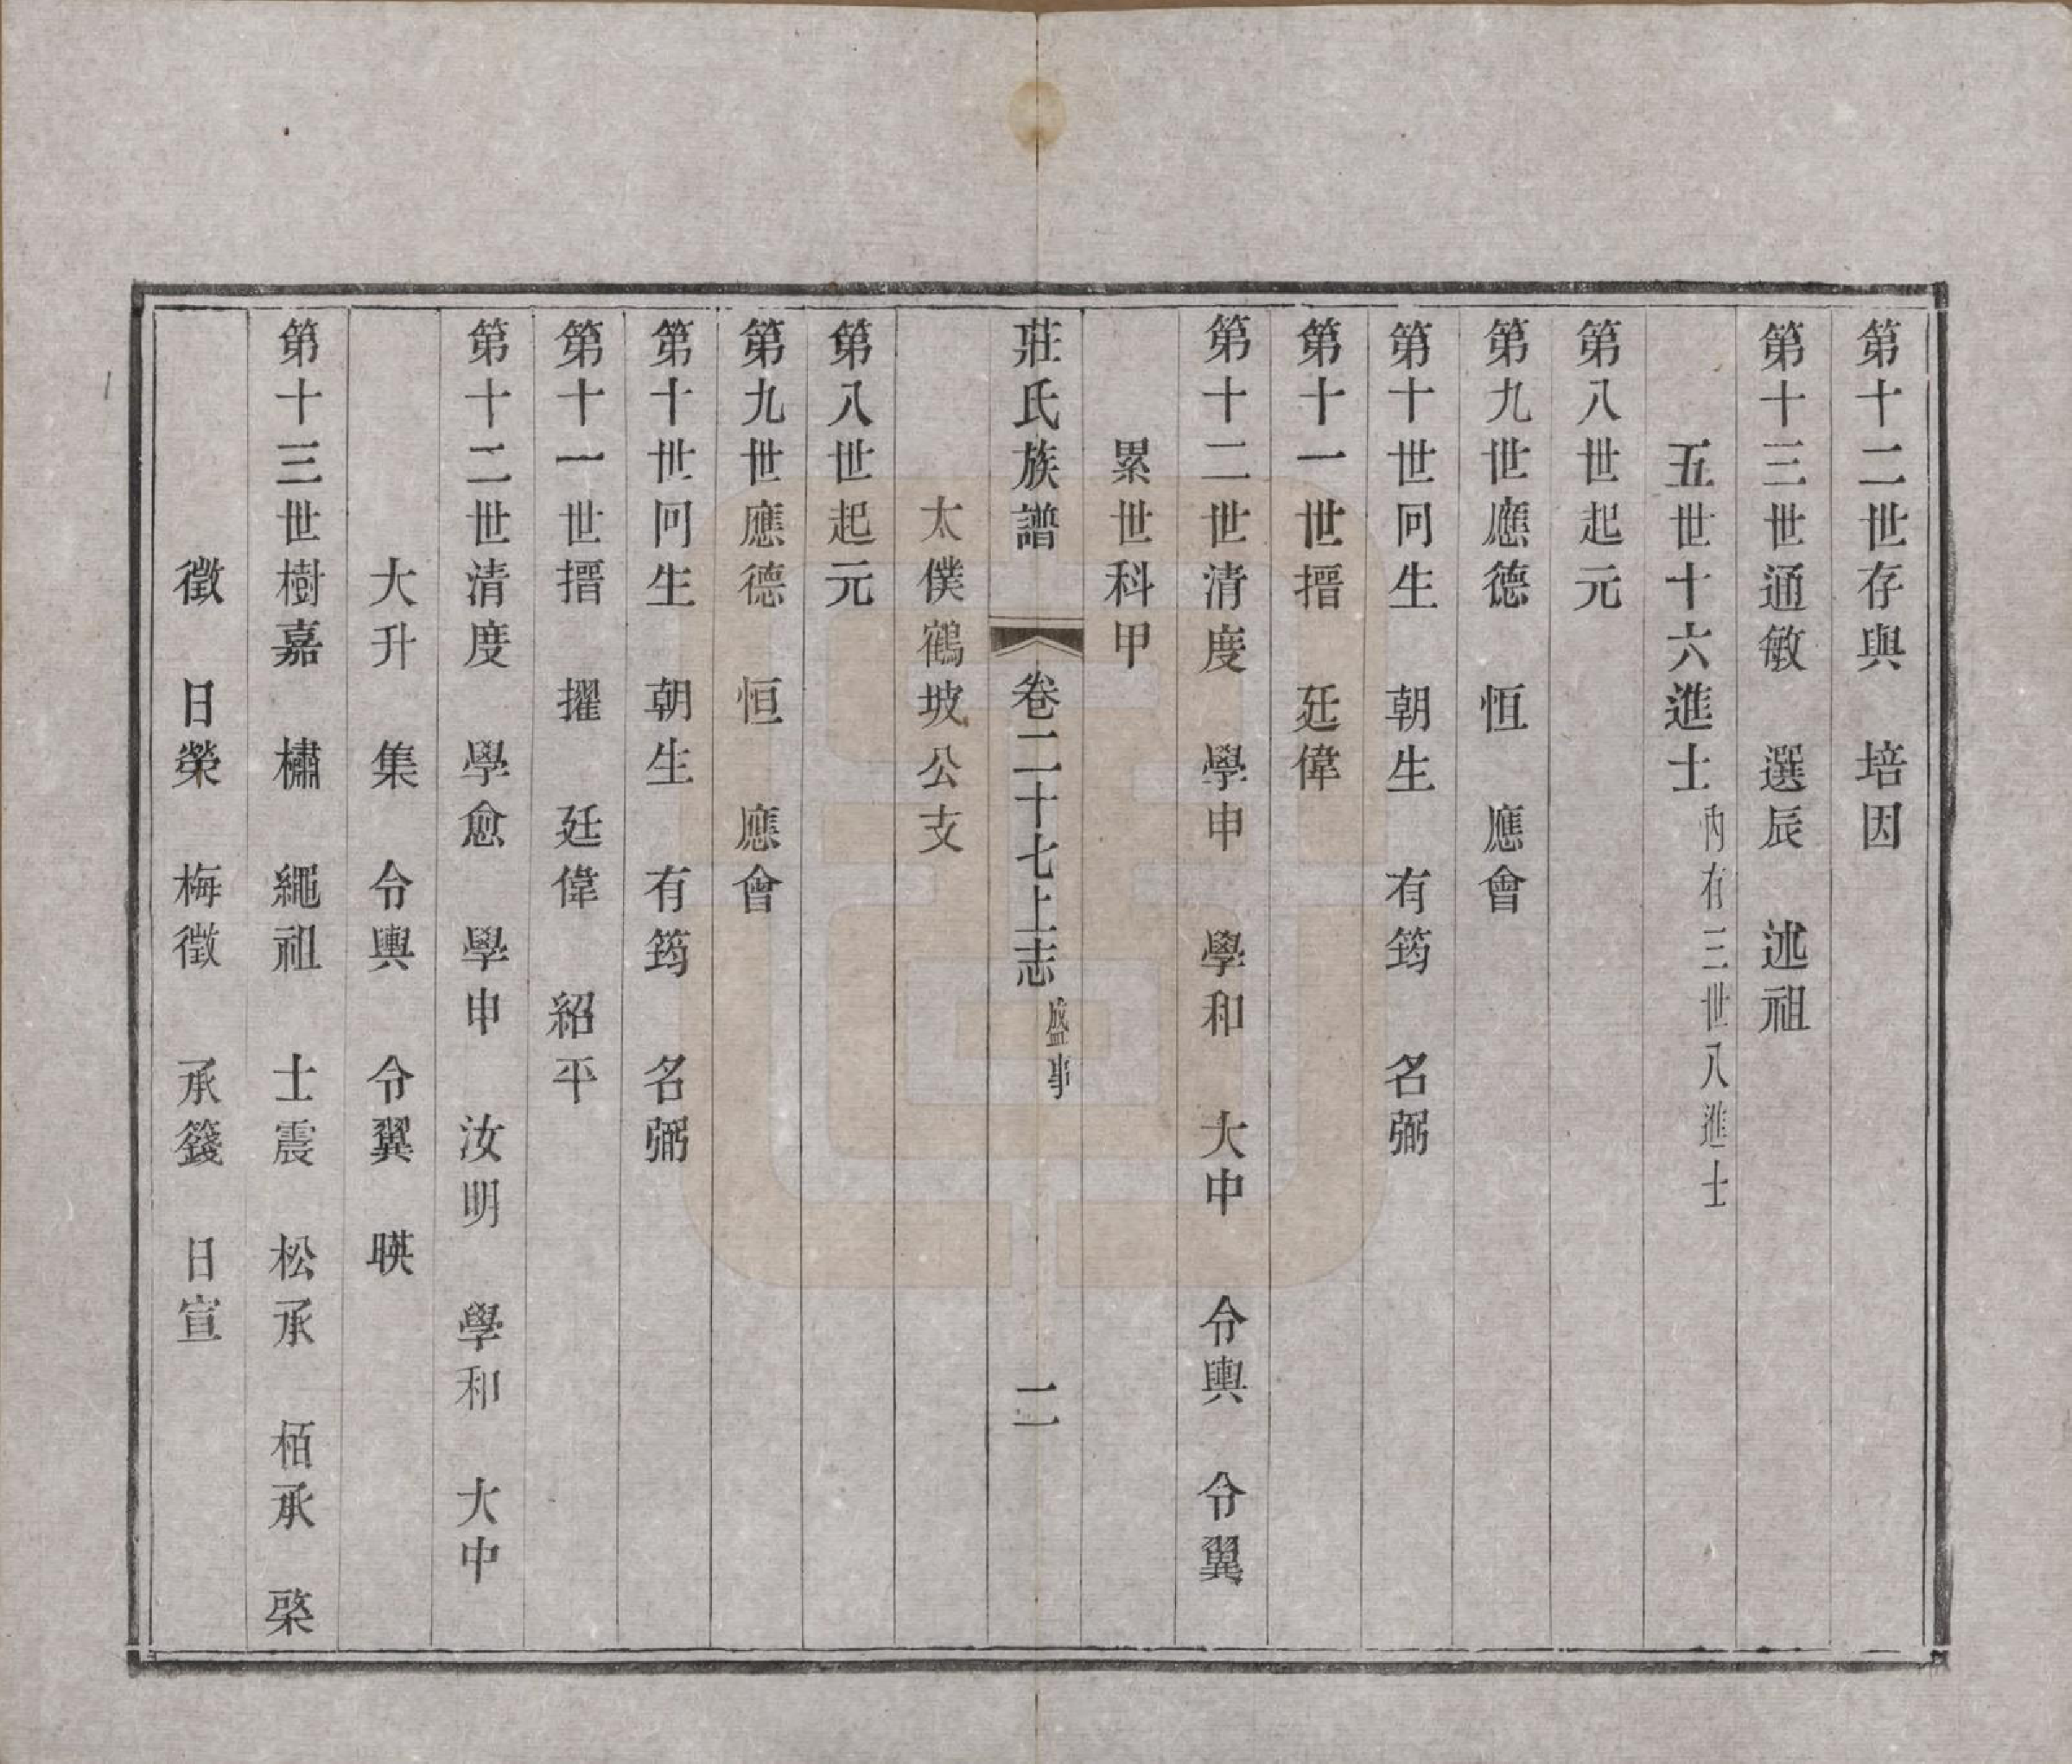 第十二世存與　培因
第十三世通敏　選辰　述祖
五世十六進士內有三世八進士
第八世起元
第九世應德　恒　應會
第十世冋生　朝生　有筠　名弼
第十一世搢　廷偉
第十二世清度　學申　學和　大中　令輿　令翼
累世科甲
莊氏族譜　卷二十七上志盛事　二
太僕鶴坡公支
第八世起元
第九世應德　恒　應會
第十世冋生　朝生　有筠　名弼
第十一世搢　擢　廷偉　紹平
第十二世清度　學愈　學申　汝明　學和　大中
大升　集　令輿　令翼　暎
第十三世樹嘉　橚　繩祖　士震　松承　栢承　棨
徵　日榮　梅徵　承籛　日宣